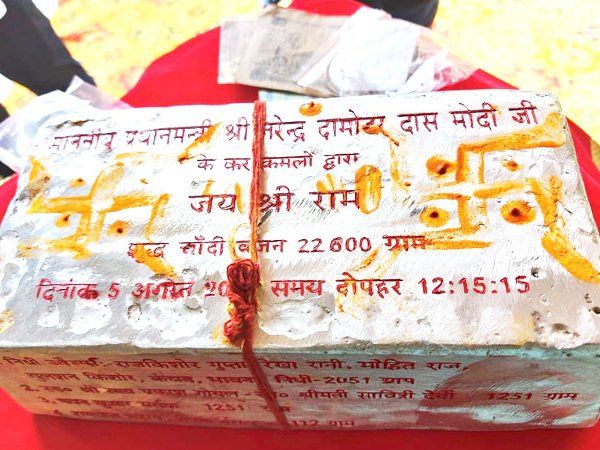 माननीय प्रधानमन्त्री श्री नरेन्द्र दामोदर दास मोदी जी
के कर कमलों द्वारा
जय श्री राम
शुद्ध चाँदी वजन 22600 ग्राम
दिनांक 5 अगस्त 20 समय दोपहर 12:15:15
राजकिशोर गुप्ता रेखा रानी, मोहित राज,
किशोर, निधी-2051 ग्राम
गोयल श्रीमती सावित्री देवी 1251 ग्राम
1251
112 ग्राम